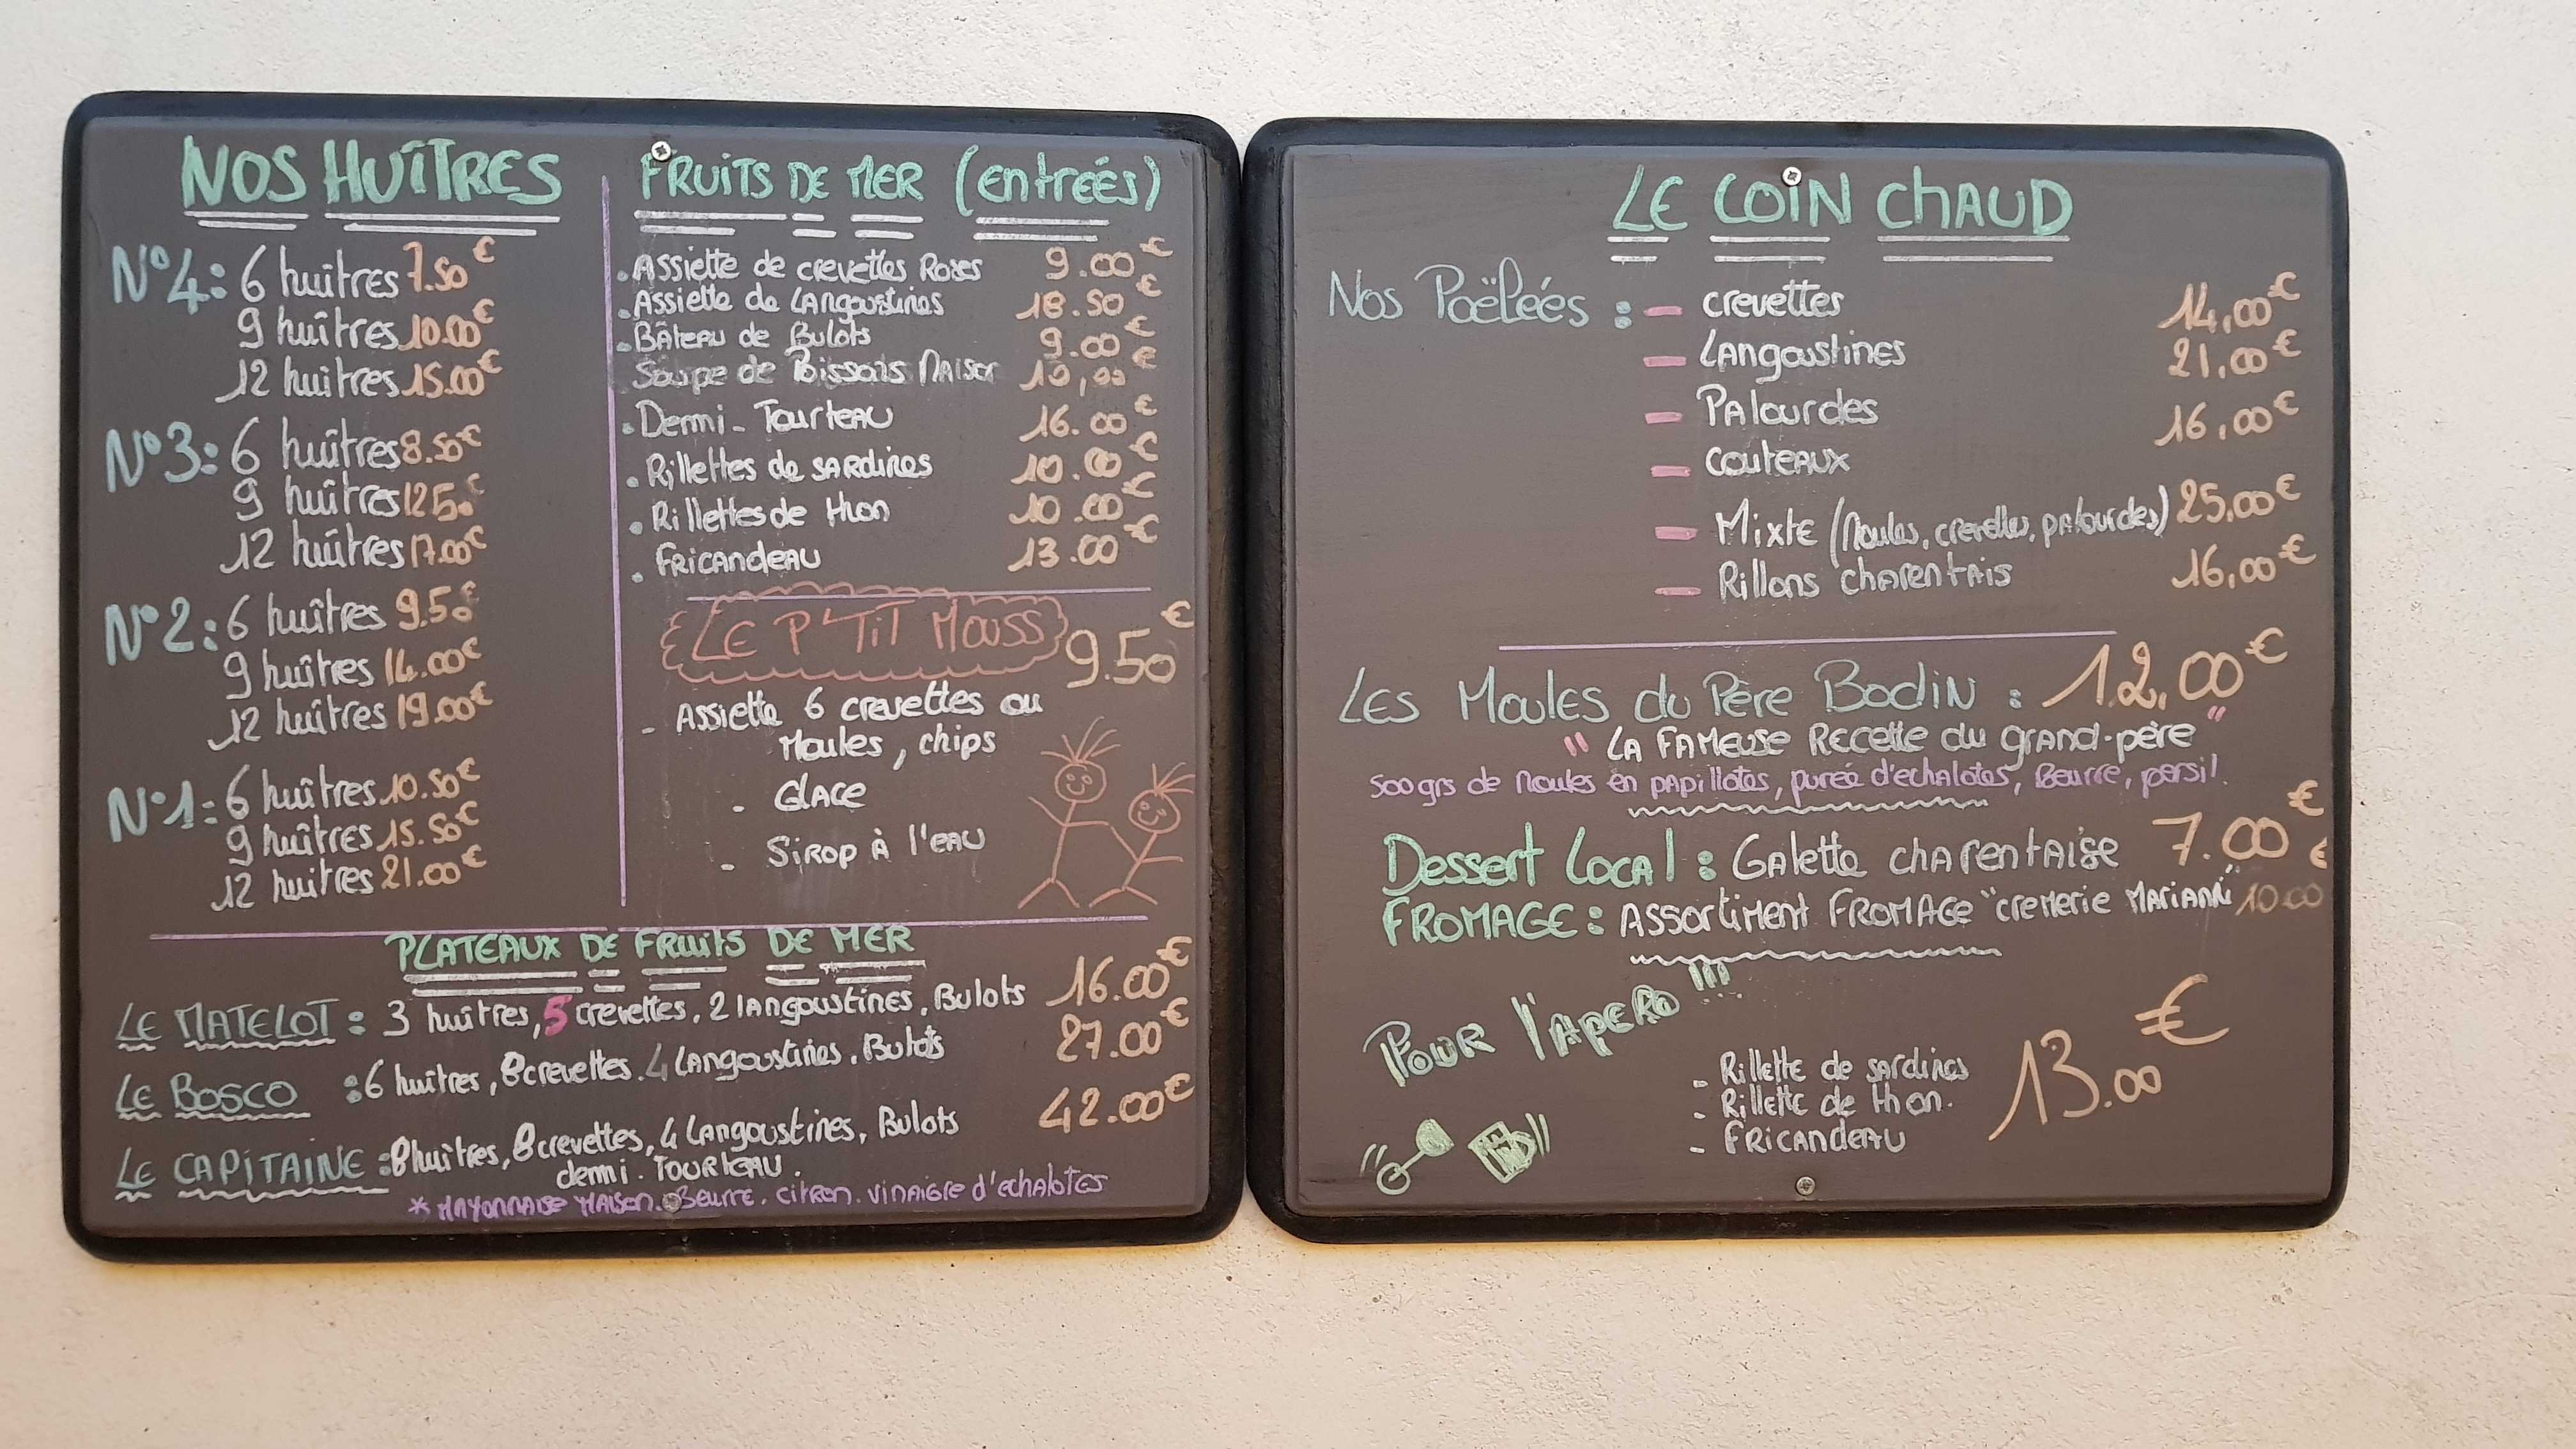 NOS HUÎTRES
N°4: 6 huîtres 7.50€
9 huîtres 10.00€
12 huîtres 15.00€
N°3: 6 huîtres 8.50€
9 huîtres 12.50€
12 huîtres 17.00€
N°2: 6 huîtres 9.50€
9 huîtres 14.00€
12 huîtres 19.00€
N°1: 6 huîtres 10.50€
9 huîtres 15.50€
12 huîtres 21.00€
FRUITS DE MER (entreés)
. Assiette de crevettes Roses 9.00€
. Assiette de Langoustines 18.50€
. Bâteau de Bulots 9.00€
Soupe de Poissons Maison 10,00€
. Demi-Tourteau 16.00€
. Rillettes de sardines 10.00€
. Rillettes de thon 10.00€
. Fricandeau 13.00€
LE P'TIT MOUSS 9.50€
- Assiette 6 crevettes ou
Moules, chips
- Glace
- Sirop à l'eau
PLATEAUX DE FRUITS DE MER
LE MATELOT : 3 huîtres, 5 crevettes, 2 langoustines, Bulots 16.00€
LE BOSCO : 6 huîtres, 8 crevettes. 4 Langoustines. Bulots 27.00€
LE CAPITAINE : 8 huîtres, 8 crevettes, 4 Langoustines, Bulots 42.00€
demi. TOURTEAU.
* MAYONNAISE MAISON. Beurre. citron. vinaigre d'echalotes
LE COIN CHAUD
Nos Poëleés : - crevettes 14,00€
- Langoustines 21,00€
- Palourdes 16,00€
- couteaux
- Mixte (Moules, crevettes, palourdes) 25,00€
- Rillons charentais 16,00€
Les Moules du Père Bodin : 12,00€
" LA FAMEUSE Recette du grand-père "
500grs de Moules en papillotes, purée d'echalotes, Beurre, persil.
Dessert Local : Galette charentaise 7.00€
FROMAGE : Assortiment FROMAGE "cremerie MARIANN" 10.00€
POUR l'APERO !!!
- Rillette de sardines
- Rillette de thon.
- Fricandeau
13.00€